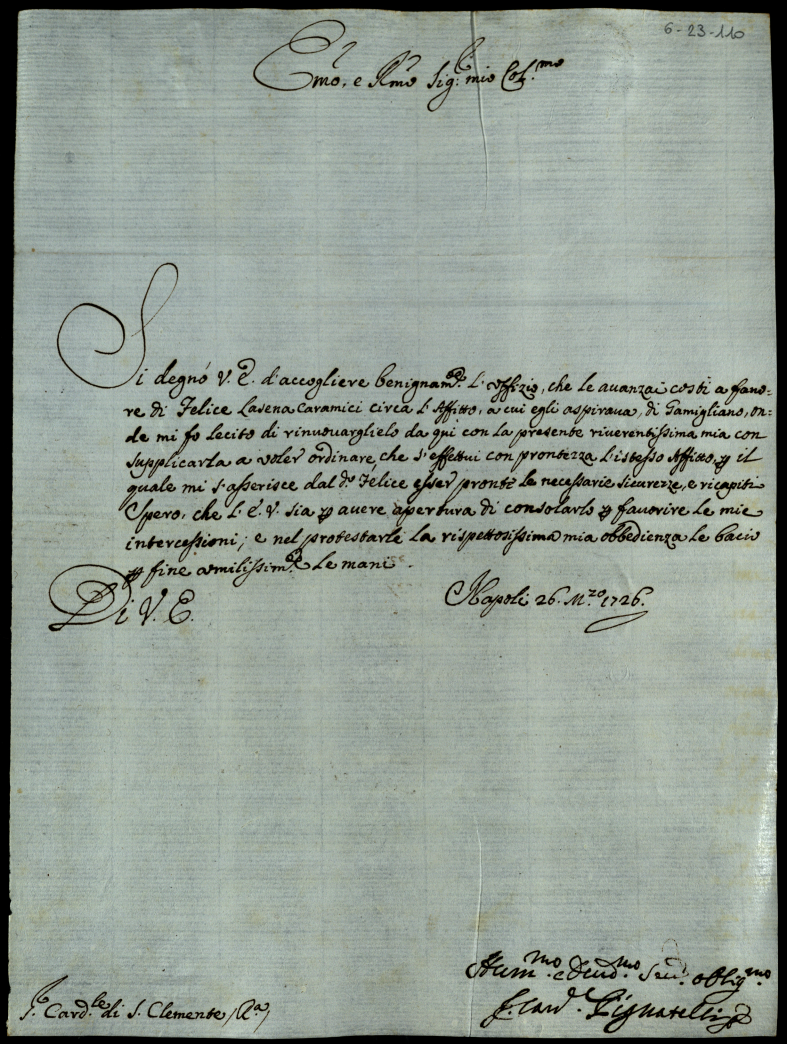 6-23-110
Emo, e Rmo Sig.r mio Col.mo
Si degnò V. E. d'accogliere benignam.te l'offizio, che le avanzai costì a favo=
re di Felice Lasena Caramici circa l'Affitto, a cui egli aspirava, di Gamigliano, on=
de mi fo lecito di rinuovarglielo da qui con la presente riverentissima mia con
supplicarla a voler ordinare, che s'effettui con prontezza l'istesso Affitto, p il
quale mi s'asserisce dal d.o Felice esser pronte le necessarie sicurezze, e ricapiti
Spero, che l'E. V. sia p avere apertura di consolarlo p favorire le mie
intercessioni; e nel protestarle la rispettosissima mia obbedienza le bacio
p fine umilissim.te le mani.
Di V. E.
Napoli 26. M.zo 1726.
Hum.mo e Deud.mo Ser.r oblig.mo
f. Card. Pignatelli
S.r Card.le di S. Clemente (Ra)